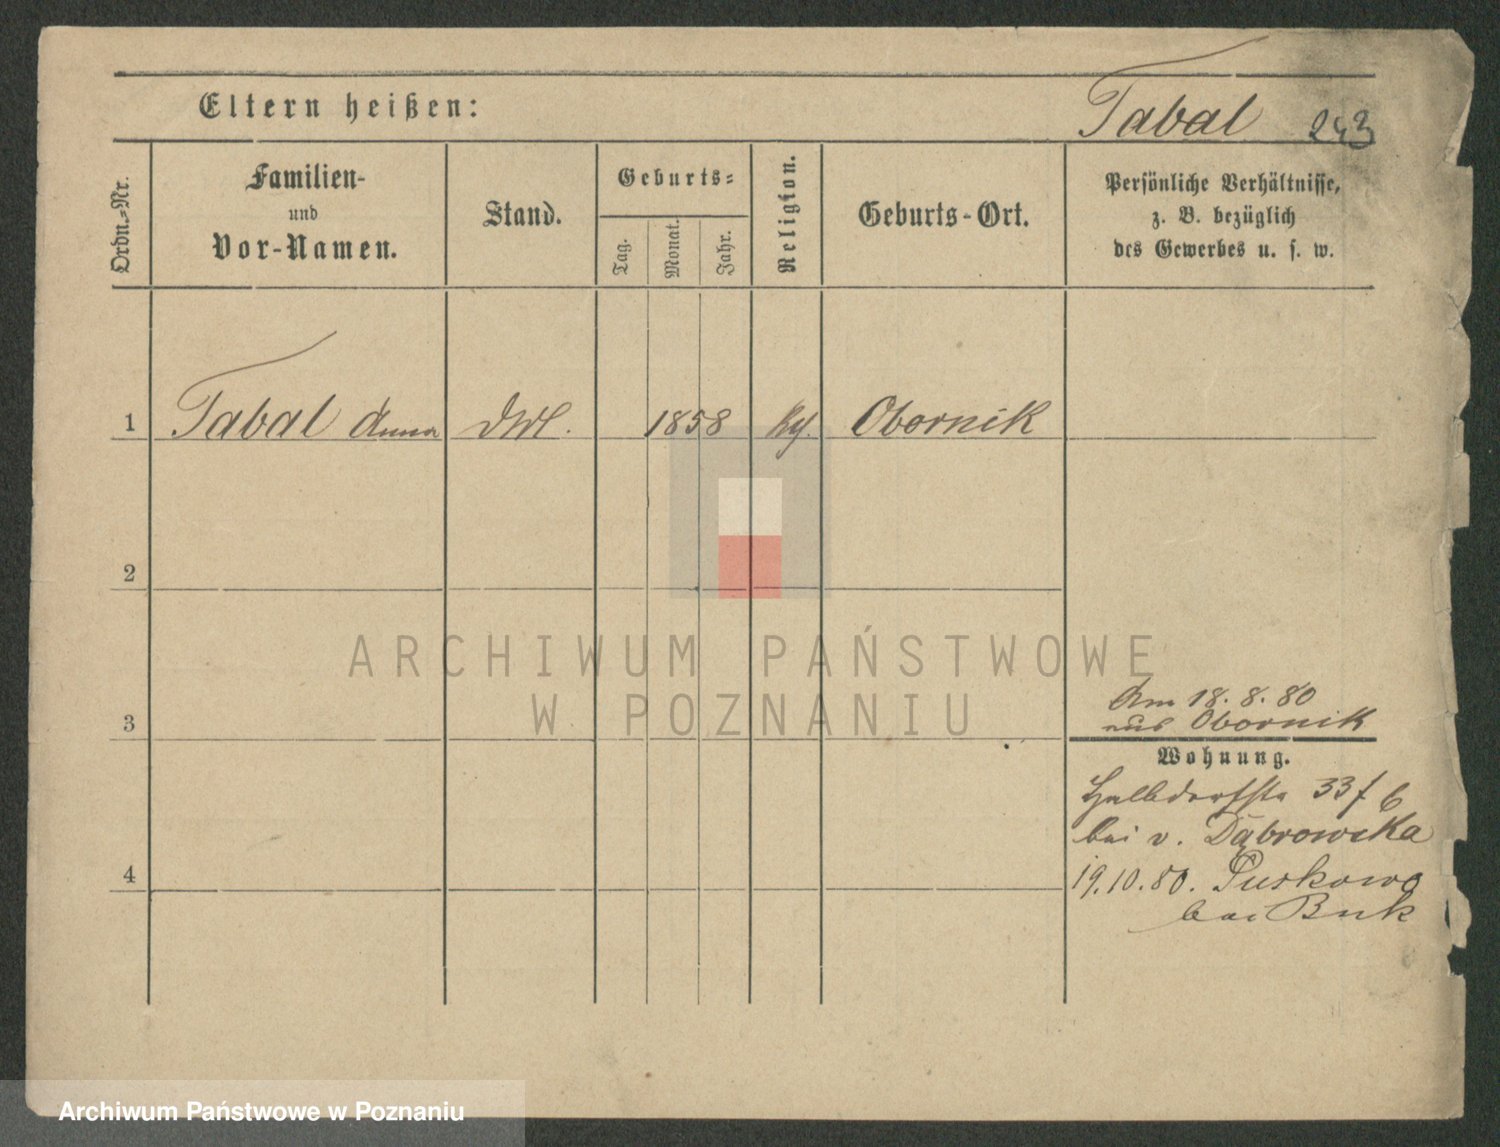 Eltern heißen:
Tabal 243
Ordn.=Nr.
Familien-
und
Vor-Namen.
Stand.
Geburts=
Tag.
Monat.
Jahr.
Religion.
Geburts-Ort.
Persönliche Verhältnisse,
z. B. bezüglich
des Gewerbes u. s. w.
1 Tabal Anna 1858 Obornik
2
ARCHIWUM PAŃSTWOWE
W POZNANIU
Am 18.8.80
aus Obornik
3
Wohnung.
Halbdorfstr 33f
bei v. Dąbrowska
4
19.10.80. Puskowo
bei Buk
Archiwum Państwowe w Poznaniu